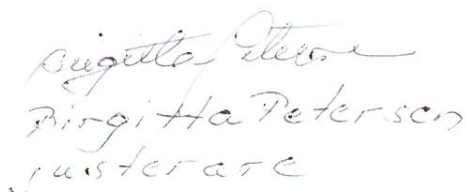 Birgitta Peterson
Birgitta Peterson
justerare